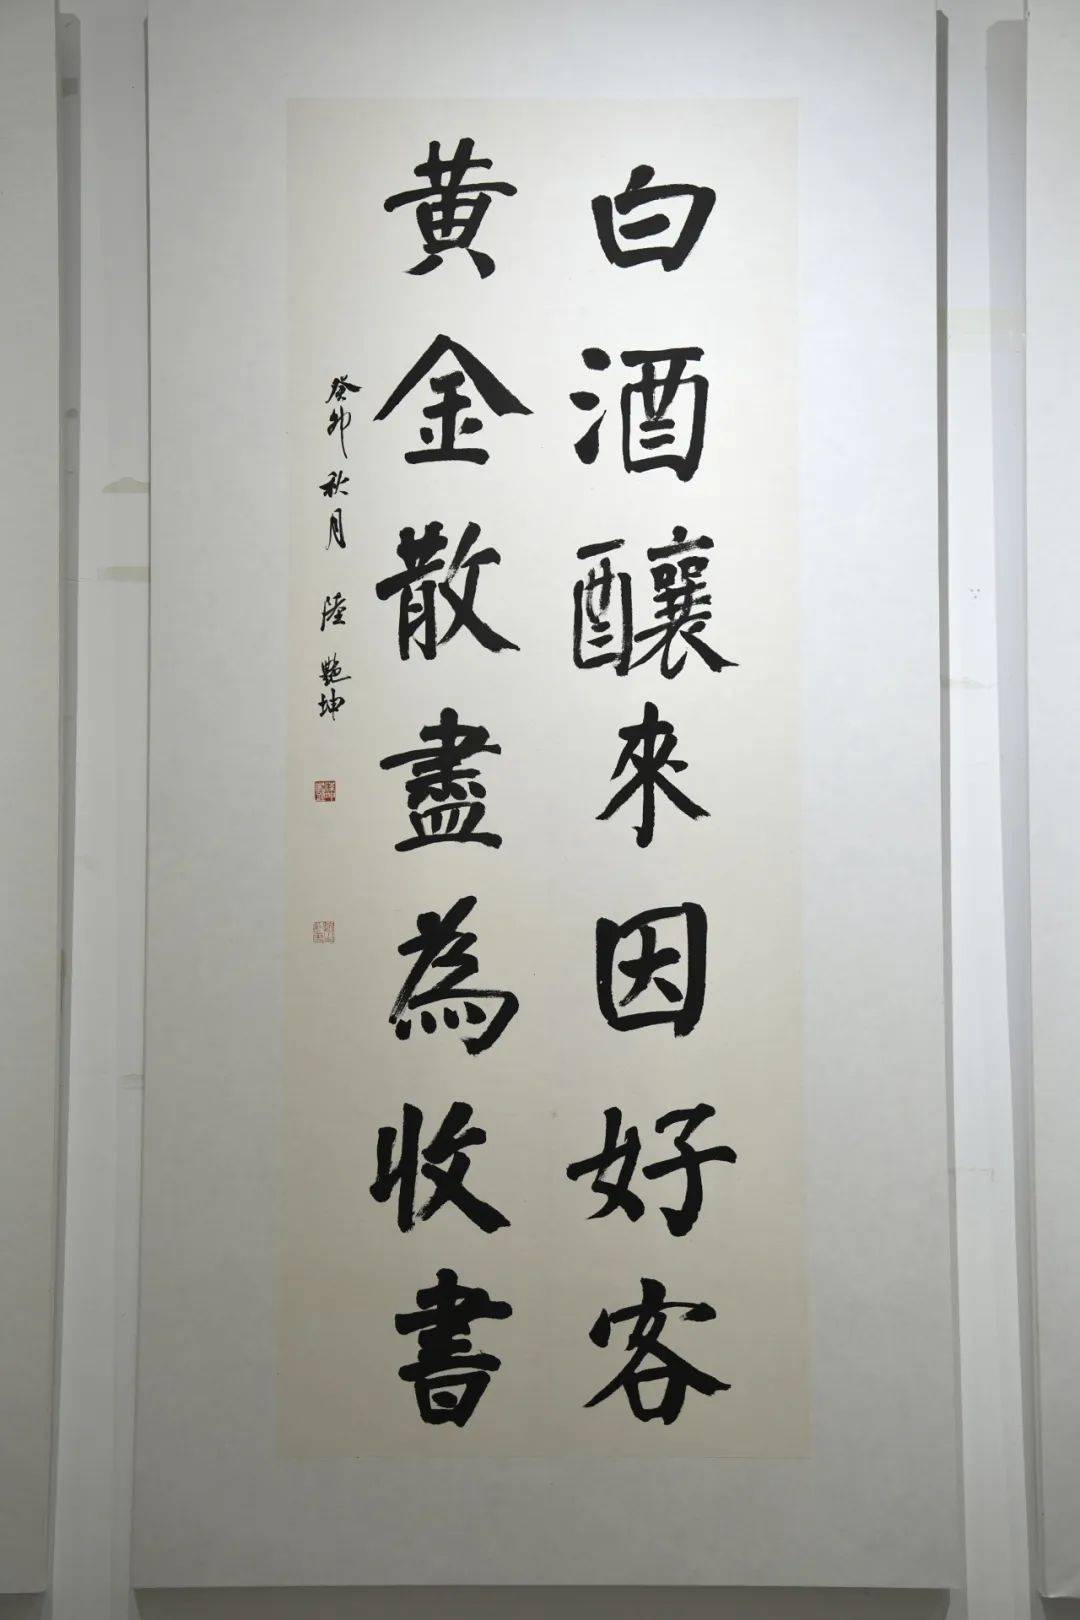 白酒釀來因好客
黄金散盡為收書
癸卯秋月 陸艷坤